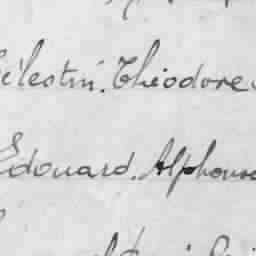 Célestin. Théodore
Edouard. Alphonse